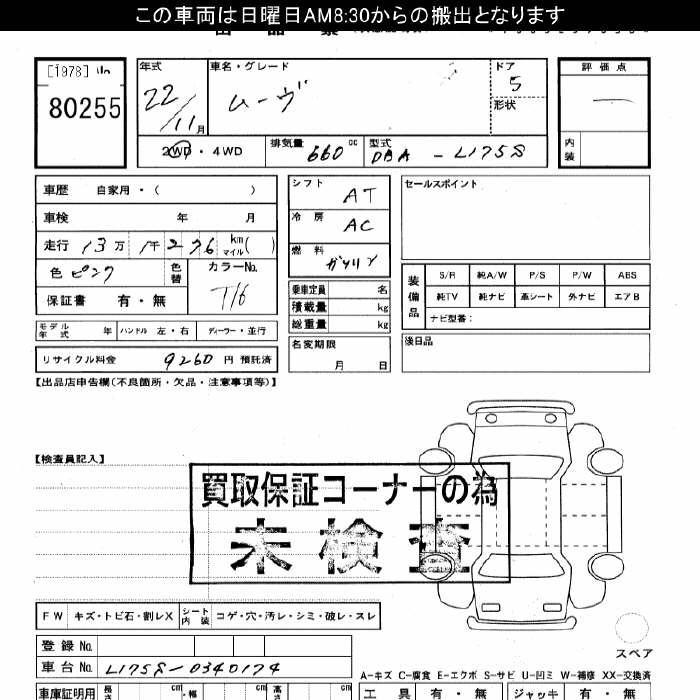 この車両は日曜日AM8:30からの搬出となります
[1978] 山
80255
年式
22/11月
車名・グレード
ムーヴ
ドア
5
形状
評価点
内装
2WD・4WD
排気量 660 cc
型式 DBA - L175S
車歴 自家用・( )
車検 年 月
走行 13万 1千276 km マイル( )
色 ピンク
色替
カラーNo.
T16
保証書 有・無
モデル年式 年 ハンドル 左・右 ディーラー・並行
リサイクル料金 9260 円 預託済
シフト AT
冷房 AC
燃料 ガソリン
乗車定員 名
積載量 kg
総重量 kg
名変期限
月 日
セールスポイント
装備品
S/R 純A/W P/S P/W ABS
純TV 純ナビ 革シート 外ナビ エアB
ナビ型番:
後日品
【出品店申告欄(不良箇所・欠品・注意事項等)】
【検査員記入】
買取保証コーナーの為
未検査
FW キズ・トビ石・割レX シート内装 コゲ・穴・汚レ・シミ・破レ・スレ
登録No.
車台No. L175S-0340174
スペア
A-キズ C-腐食 E-エクボ S-サビ U-凹ミ W-補修 XX-交換済
車庫証明用 長さ cm 幅 cm 高さ cm
工具 有・無 ジャッキ 有・無